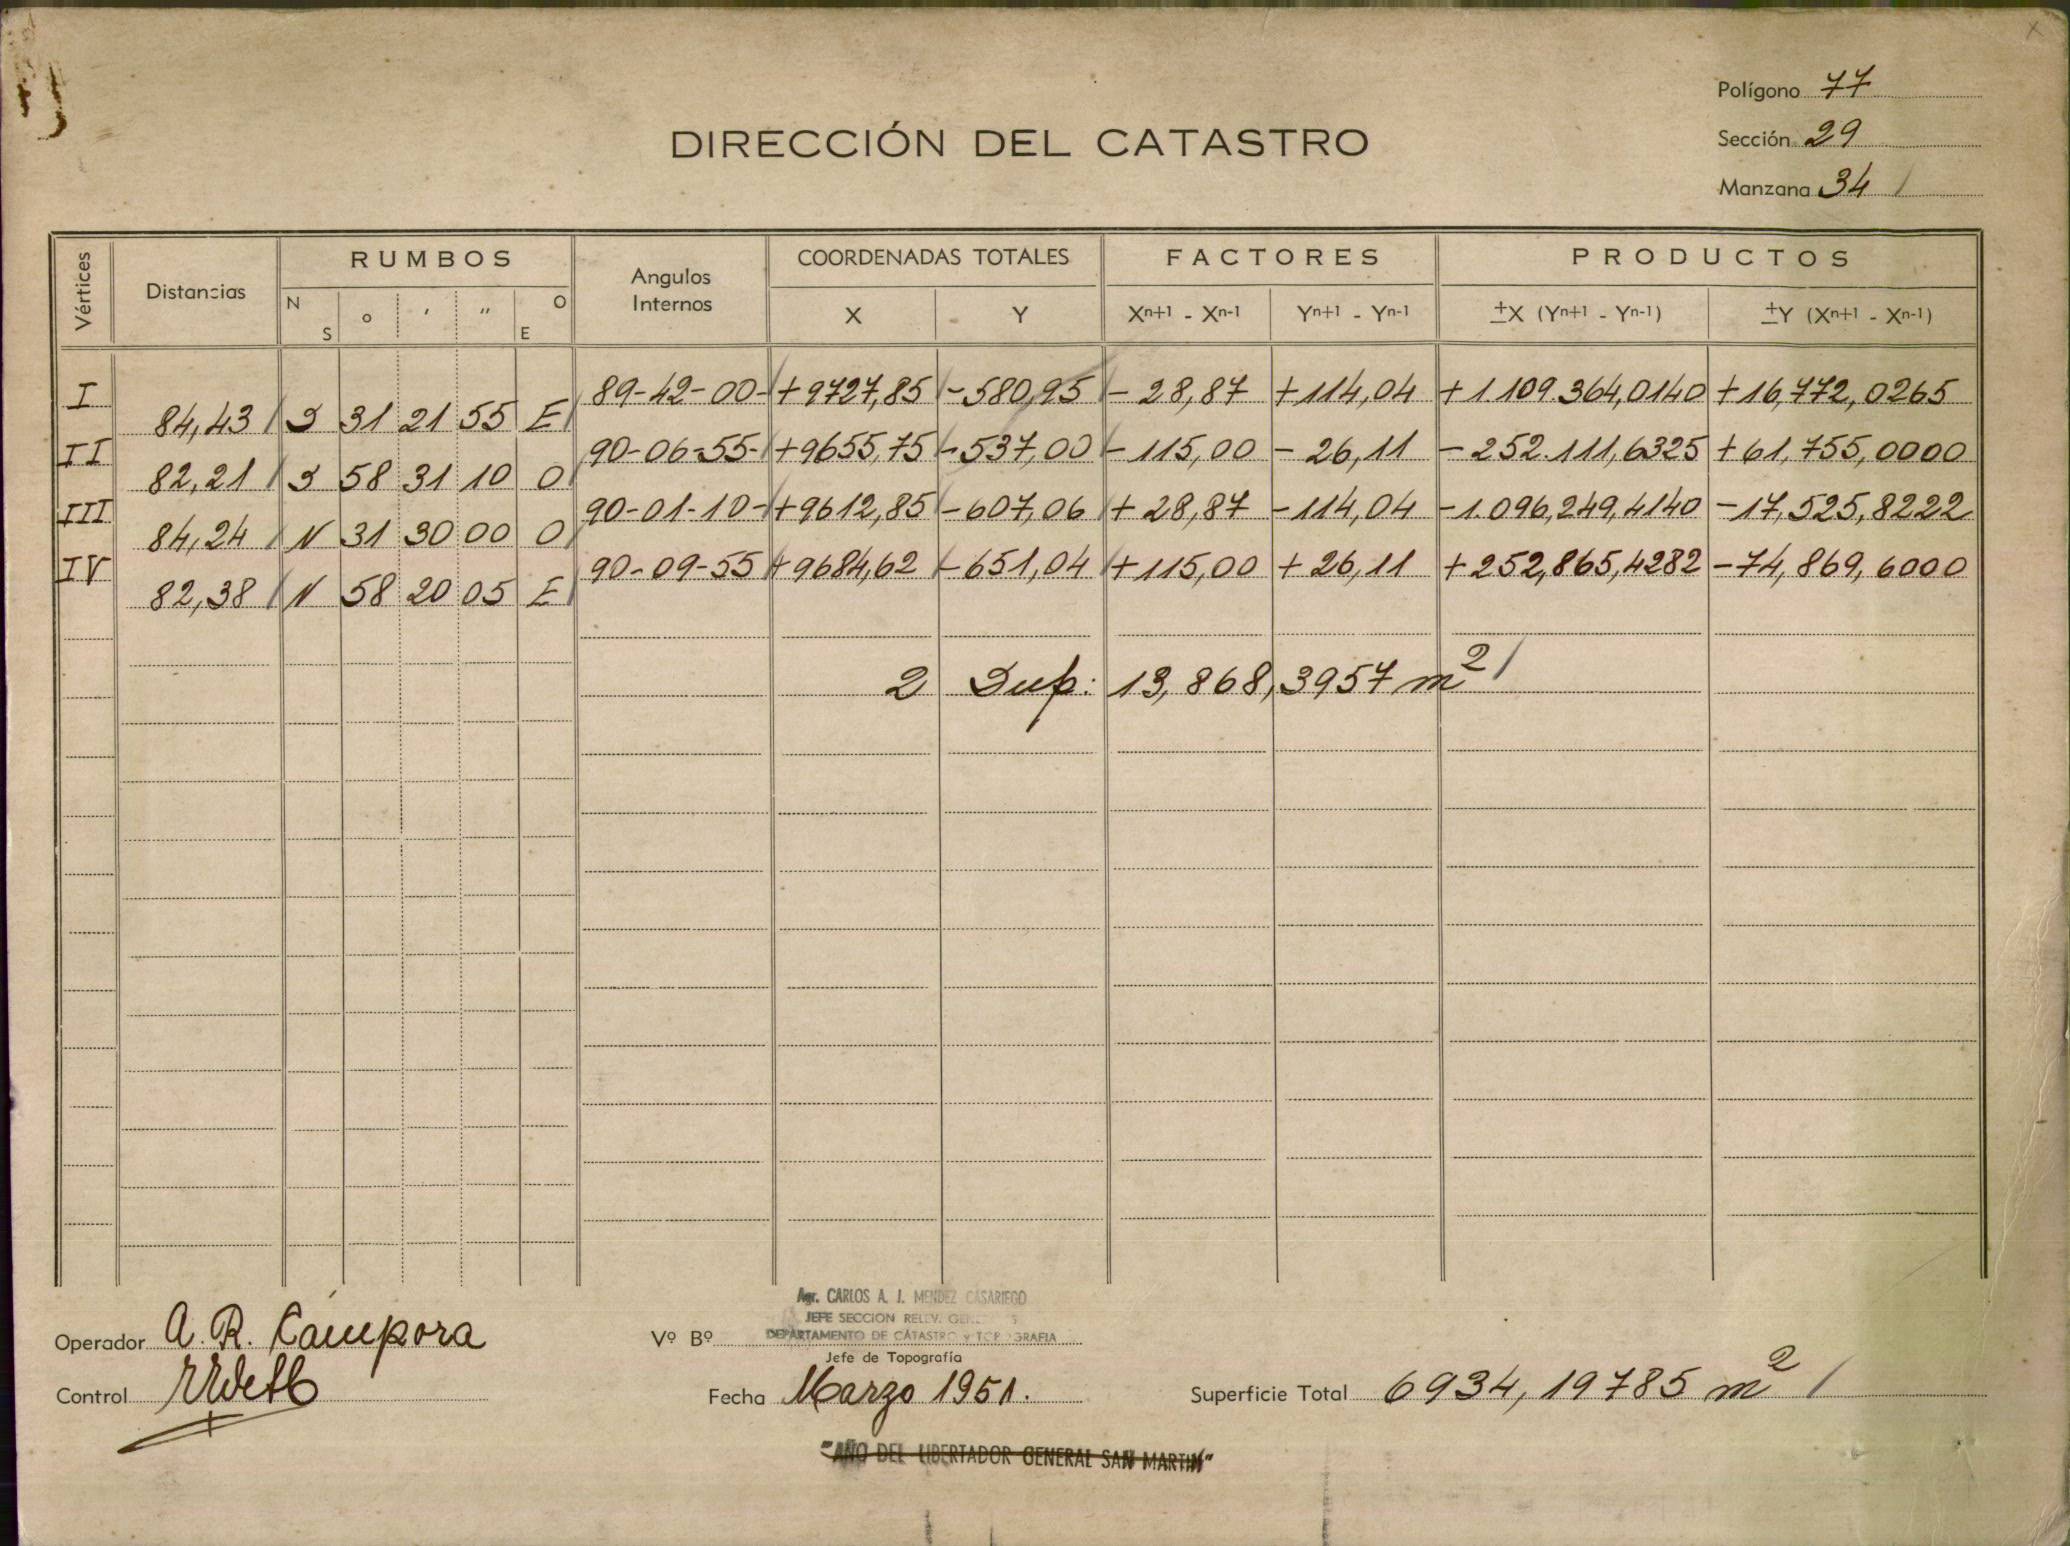 Polígono 77
DIRECCIÓN DEL CATASTRO
Sección 29
Manzana 34
Vértices Distancias RUMBOS Angulos Internos COORDENADAS TOTALES FACTORES PRODUCTOS
N S o ' " O E X Y Xn+1 - Xn-1 Yn+1 - Yn-1 ±X (Yn+1 - Yn-1) ±Y (Xn+1 - Xn-1)
I 89-42-00- +9727,85 -580,95 -28,87 +114,04 +1.109.364,0140 +16,772,0265
84,43 S 31 21 55 E
II 90-06-55- +9655,75 -537,00 -115,00 -26,11 -252.111,6325 +61,755,0000
82,21 S 58 31 10 O
III 90-01-10- +9612,85 -607,06 +28,87 -114,04 -1.096,249,4140 -17,525,8222
84,24 N 31 30 00 O
IV 90-09-55 +9684,62 -651,04 +115,00 +26,11 +252,865,4282 -74,869,6000
82,38 N 58 20 05 E
2 Sup: 13,868,3957 m2
Agr. CARLOS A. J. MENDEZ CASARIEGO
JEFE SECCION RELEV.
DEPARTAMENTO DE CATASTRO y TOPOGRAFIA
Operador A. R. Cámpora Vº Bº
Jefe de Topografía
Control Fecha Marzo 1951. Superficie Total 6934,19785 m2
"AÑO DEL LIBERTADOR GENERAL SAN MARTIN"